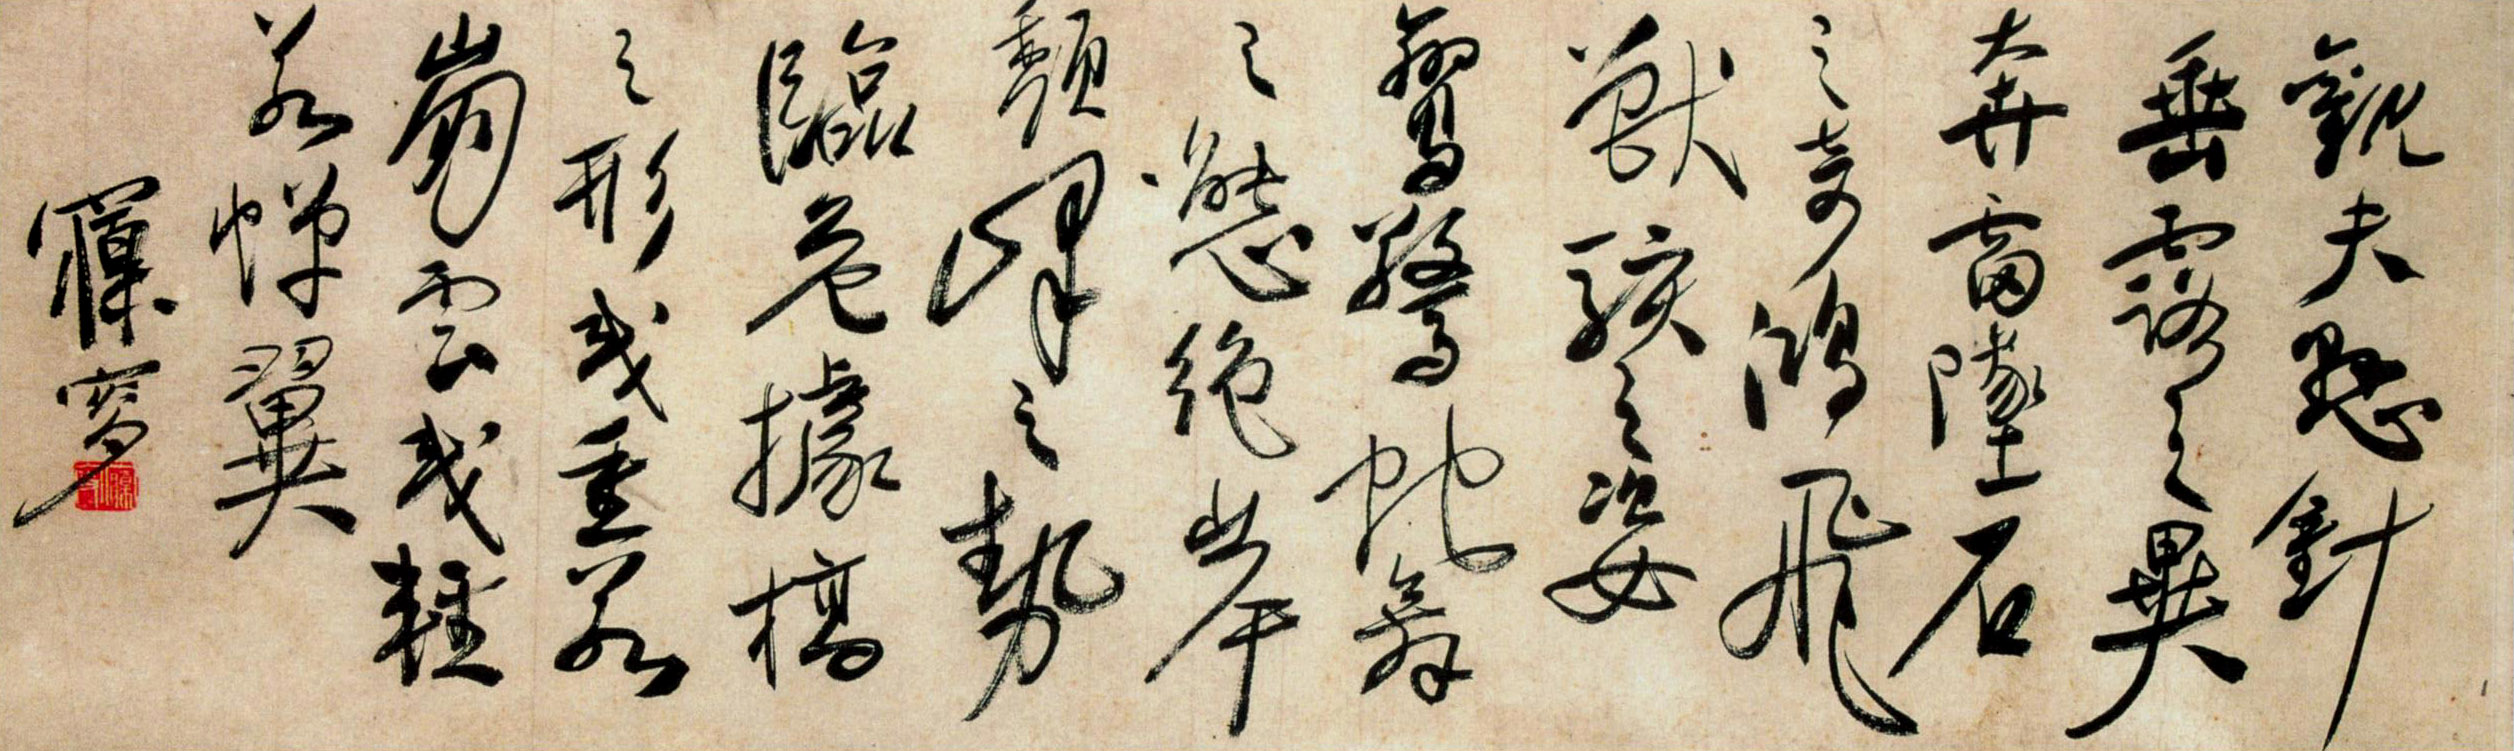 觀夫懸針
垂露之異
奔雷墜石
之奇鴻飛
獸駭之姿
鸞驚蛇舞
之態絕岸
頹峰之勢
臨危據槁
之形或重若
崩雲或輕
若蟬翼